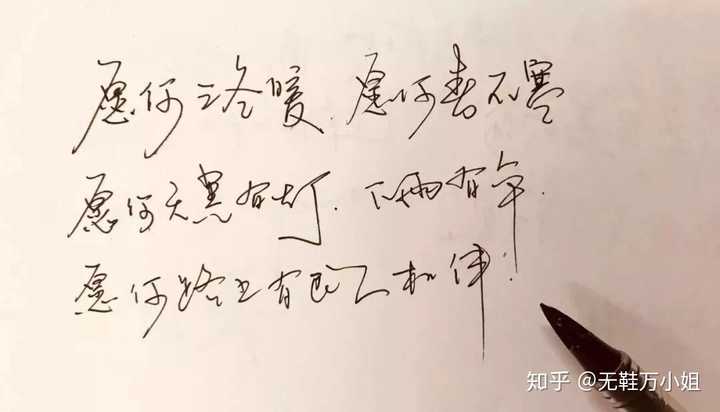 愿你三冬暖.愿你春不寒
愿你天黑有灯.下雨有伞.
愿你路上有良人相伴!
知乎 @无鞋万小姐